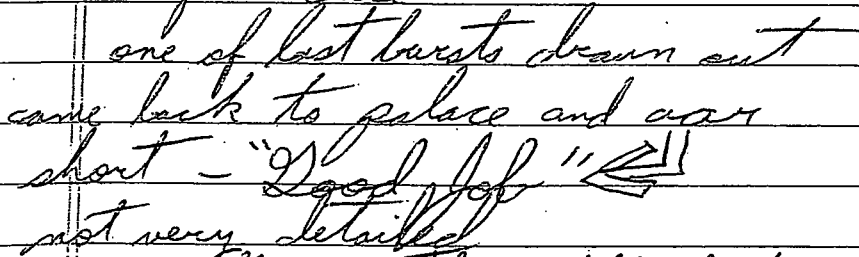 one of last bursts drawn out
came back to palace and aar
short - "Good Job"
not very detailed